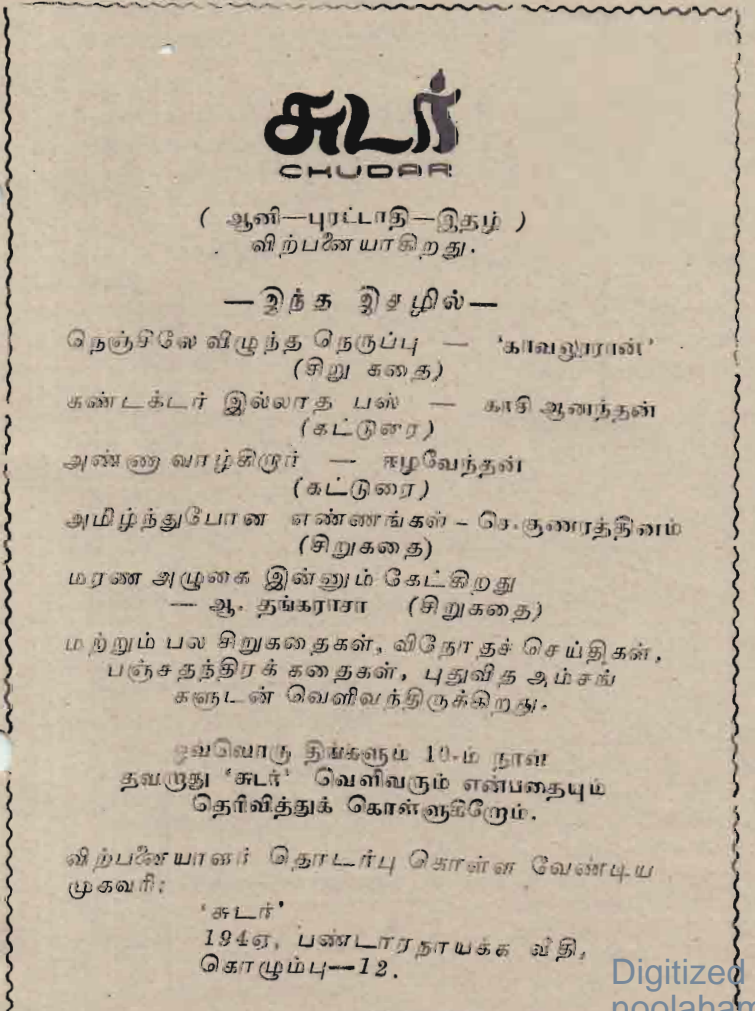 சுடர்
CHUDAR
( ஆனி—புரட்டாதி—இதழ் )
விற்பனையாகிறது.
— இந்த இதழில் —
நெஞ்சிலே விழுந்த நெருப்பு — 'காவலூரான்'
(சிறு கதை)
கண்டக்டர் இல்லாத பஸ் — காசி ஆனந்தன்
(கட்டுரை)
அண்ணா வாழ்கிறார் — ஈழவேந்தன்
(கட்டுரை)
அமிழ்ந்துபோன எண்ணங்கள் – செ.குணரத்தினம்
(சிறுகதை)
மரண அழுகை இன்னும் கேட்கிறது
— ஆ. தங்கராசா (சிறுகதை)
மற்றும் பல சிறுகதைகள், விநோதச் செய்திகள்,
பஞ்சதந்திரக் கதைகள், புதுவித அம்சங்
களுடன் வெளிவந்திருக்கிறது.
ஒவ்வொரு திங்களும் 10-ம் நாள்
தவறாது 'சுடர்' வெளிவரும் என்பதையும்
தெரிவித்துக் கொள்ளுகிறோம்.
விற்பனையாளர் தொடர்பு கொள்ள வேண்டிய
முகவரி:
'சுடர்'
194ஏ, பண்டாரநாயக்க வீதி,
கொழும்பு—12.
Digitized
noolaham